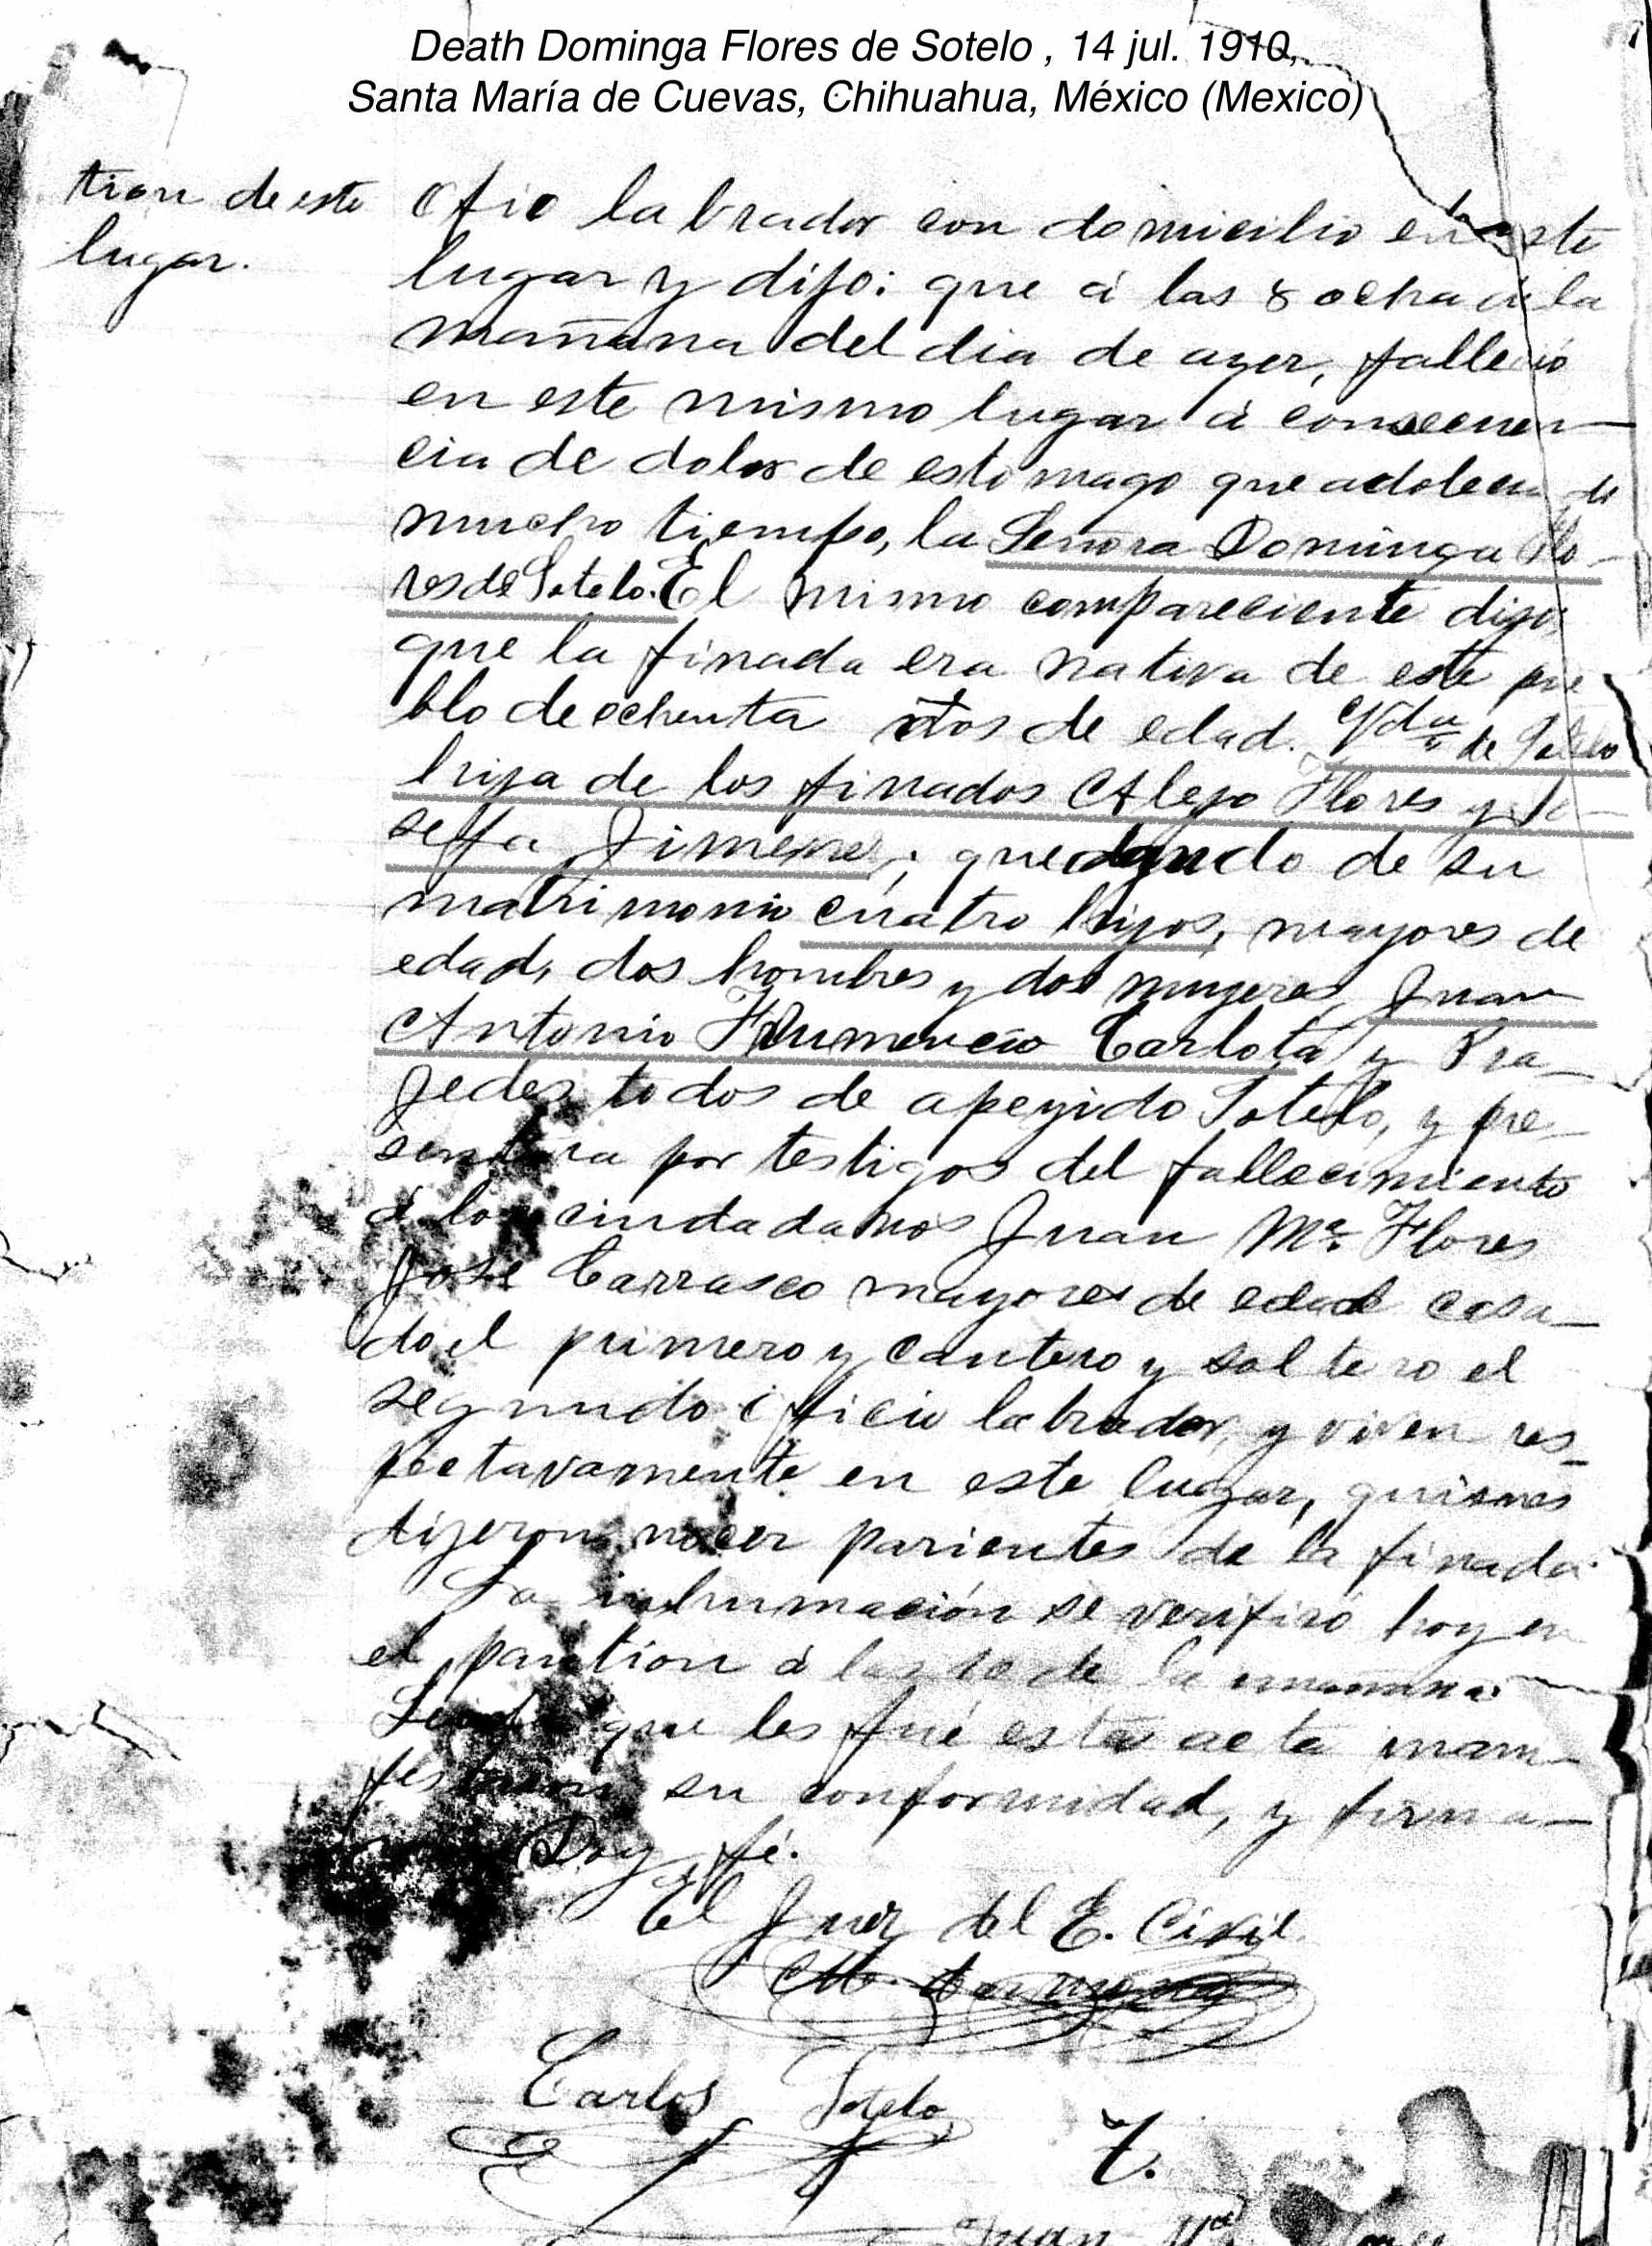 Death Dominga Flores de Sotelo , 14 jul. 1910,
Santa María de Cuevas, Chihuahua, México (Mexico)
tion de este
lugar.
ofio labrador con domicilio en este
lugar y dijo: que á las 8 ocho de la
mañana del dia de ayer, falleció
en este mismo lugar á consecuen-
cia de dolor de estomago que adolecia de
mucho tiempo, la Señora Dominga Flo-
res de Sotelo. El mismo compareciente dijo:
que la finada era nativa de este pue
blo de ochenta años de edad. Vda de Sotelo
hija de los finados Alejo Flores y Jo-
seffa Jimenez; quedando de su
matrimonio cuatro hijos, mayores de
edad, dos hombres y dos mujeres, Juan
Antonio Carlota y Pra-
jedes, todos de apeyido Sotelo, y pre-
sentava por testigos del fallecimiento
á los ciudadanos Juan Ma. Flores
José Carrasco mayores de edad casa-
do el primero y cantero y soltero el
segundo oficio labrador, y viven res-
pectavamente en este lugar, quienes
dijeron no ser parientes de la finada.
La inhumación se verifiró hoy en
el pantion á las 10 de la mañana.
que les fué esta acta mani-
festaron su conformidad, y firma-
Doy fé.
El Juez del E. Civil.
Carlos Sotelo
Juan Ma